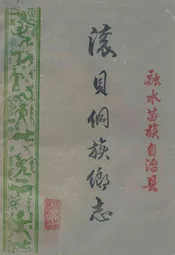 融水苗族自治县
滚贝侗族乡志